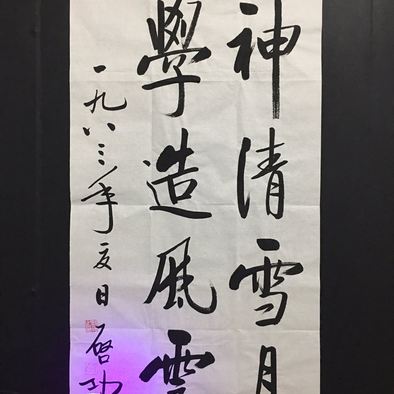 神清雪月
學造風雲
一九八三年夏日啓功